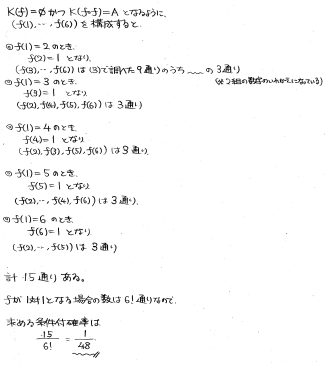 K(f)=∅ かつ K(f∘f)=A となるように、
(f(1), …, f(6)) を構成すると
◎ f(1)=2 のとき、
f(2)=1 となり、
(f(3), …, f(6)) は (3)で調べた 9通りのうち 〰 の 3通り
(※2組の数字のいれかえになっている)
◎ f(1)=3 のとき、
f(3)=1 となり
(f(2), f(4), f(5), f(6)) は 3通り
◎ f(1)=4 のとき
f(4)=1 となり
(f(2), f(3), f(5), f(6)) は 3通り
◎ f(1)=5 のとき
f(5)=1 となり
(f(2), …, f(4), f(6)) は 3通り.
◎ f(1)=6 のとき
f(6)=1 となり
(f(2), …, f(5)) は 3通り
計 15通りある。
fが1対1となる場合の数は6!通りなので.
求める条件付確率は
15/6! = 1/48